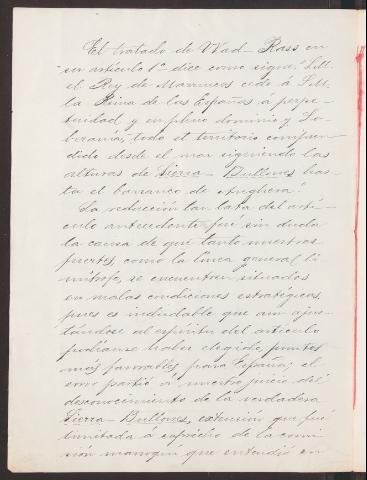 El tratado de Wad-Rass en
su artículo 1º dice como sigue "S.M.
el Rey de Marruecos cede á S.M.
la Reina de las Españas á perpe-
tuidad y en pleno dominio y So-
beranía, todo el territorio compren-
dido desde el mar siguiendo las
alturas de Sierra-Bullones has-
ta el barranco de Anghera"
La redacción tan lata del artí-
culo antecedente fué sin duda
la causa de que tanto nuestros
fuertes, como la línea general li-
mítrofe, se encuentren situados
en malas condiciones estratégicas,
pues es indudable que aun ajus-
tándose al espíritu del artículo
pudiérase haber elegido, puntos
más favorables para España; el
error partió á nuestro juicio del
desconocimiento de la verdadera
Sierra-Bullones, extensión que fué
limitada á capricho de la comi-
sión marroquí que entendió en